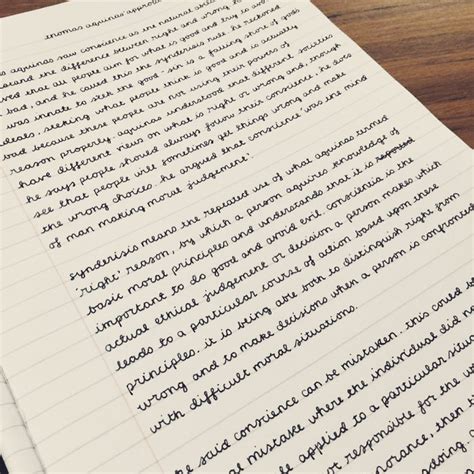 thomas aquinas approa
aquinas saw conscience as the natural abil
stand the difference between right and wrong. he
ved that all people aim for what is good and try to avoi
bad, and he called this the synderisis rule. he reckoned
was innate to seek the good - sin is a falling short of gods
deals, seeking what people think is good and is actually
bad because these people are not using their powers of
reason properly. aquinas understood that different societies
have different views on what is right or wrong and, though
he says people should always follow their conscience, he does
see that people will sometimes get things wrong and make
the wrong choices. he argued that conscience 'was the mind
of man making moral judgement'.
synderisis means the repeated use of what aquinas termed
'right' reason, by which a person aquires knowledge of
basic moral principles and understands that it is
important to do good and avoid evil. conscientia is the
actual ethical judgement or decision a person makes which
leads to a particular course of action based upon these
principles. it is being able born to distinguish right from
wrong and to make decisions when a person is confronted
with difficult moral situations.
he said conscience can be mistaken. this could b
al mistake where the individual did no
e applied to a particular situa
t responsible for the w
orance, then t
doing a